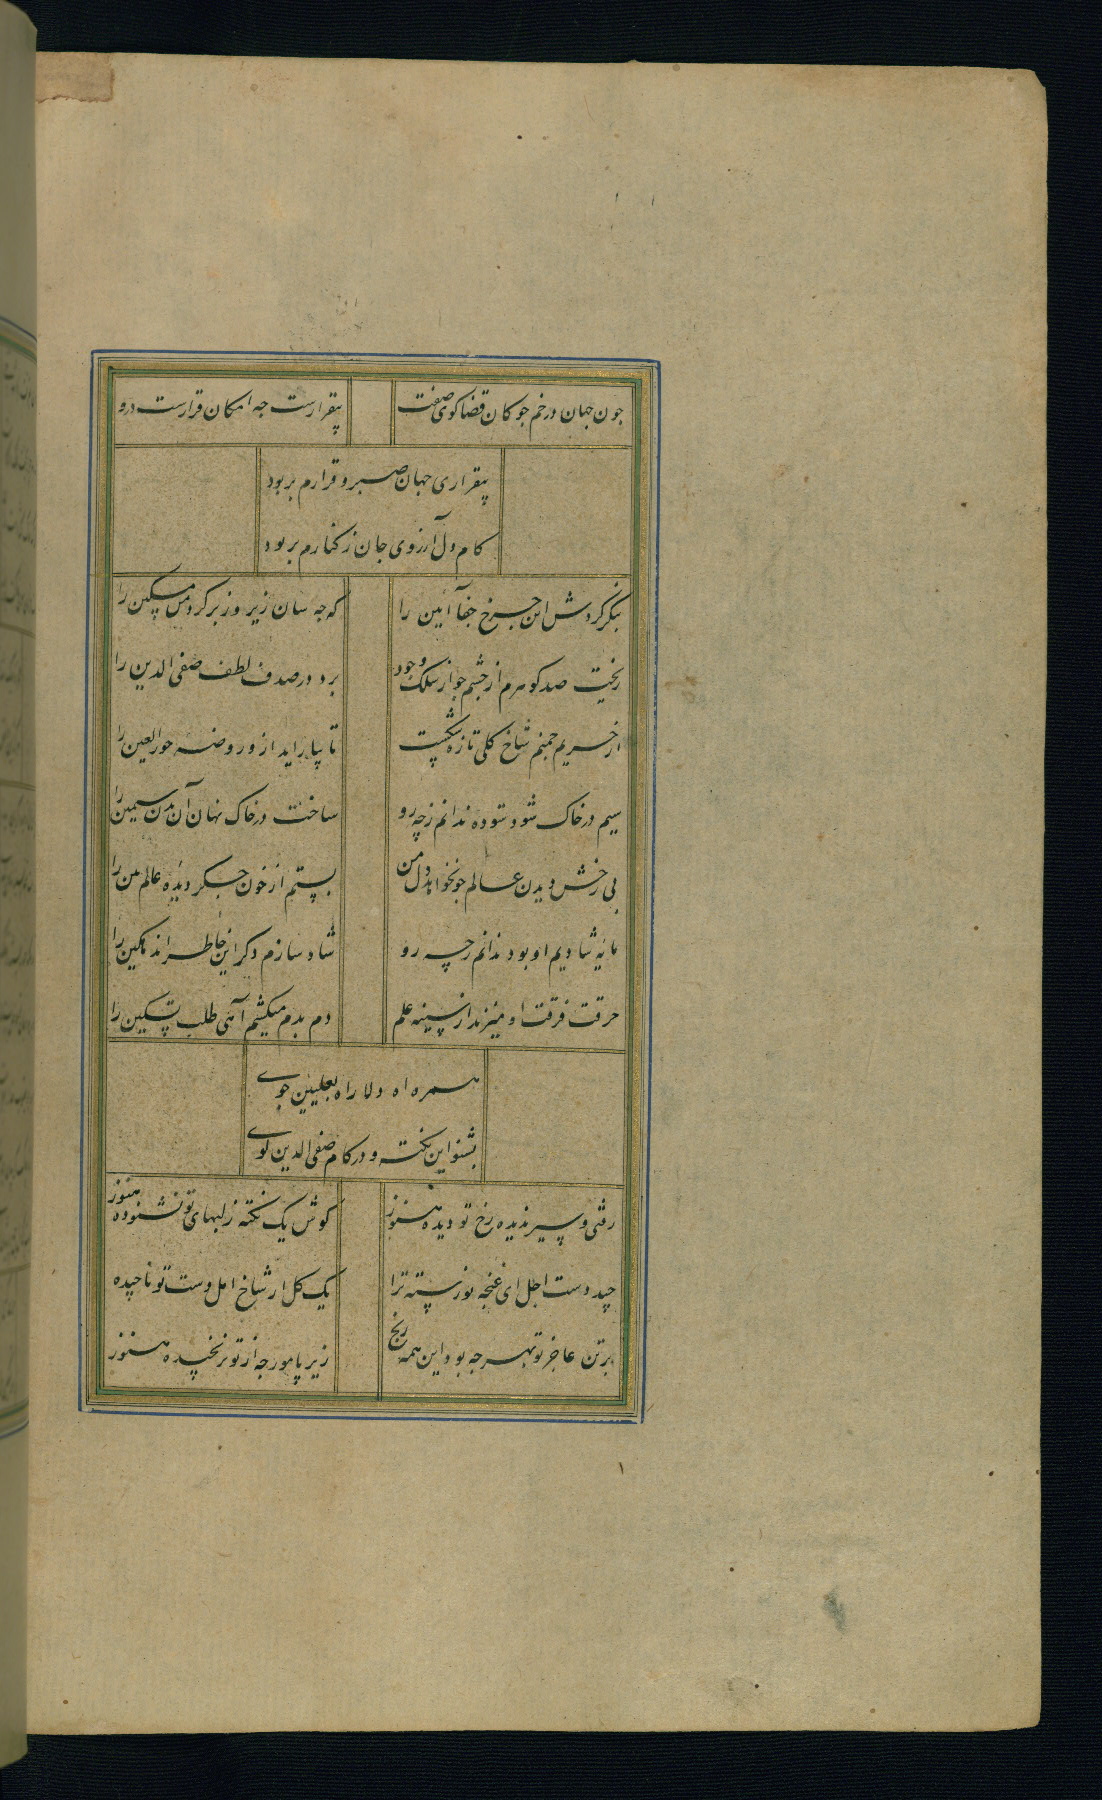 جون جهان در خم جوکان قضا کوی صفت بیقرارست جه امکان قرارست درو
بیقراری جهان صبر و قرارم بربود
کام دل آرزوی جان ز کنارم بربود
بنگر کردش این جرخ جفا آیین را که جه سان زیر و زبر کرد من مسکین را
ریخت صد کوهرم از جشم جو از سلک وجود برد در صدف لطف صفی الدین را
از حریم جمنم شاخ کلی تازه شکست تا بیاراید ازو روضه حور العین را
سیم در خاک شود سوده ندانم زچه رو ساخت در خاک نهان آن بدن سیمین را
بی رخش دیدن عالم جو نخواهد دل من بستم از خون جکر دیده عالم بین را
مایه شادیم او بود ندانم زچه رو شاد سازم دکر این خاطر اندهکین را
حرقت فرقت او میزند از سینه علم دم بدم میکشم آهی طلب تسکین را
همره آه دلا راه بعلیین جوی
بشنو این نکته و در کام صفی الدین کوی
رفتی و سیر ندیده رخ تو دیده هنوز کوش یک نکته ز لبهای تو نشنوده هنوز
چید دست اجل ای غنجه نورسته ترا یک کل از شاخ امل دست تو ناچیده
بر تن عاجز تو بهر جه بود این همه رنج زیر پا مورجه از تو نرنجیده هنوز